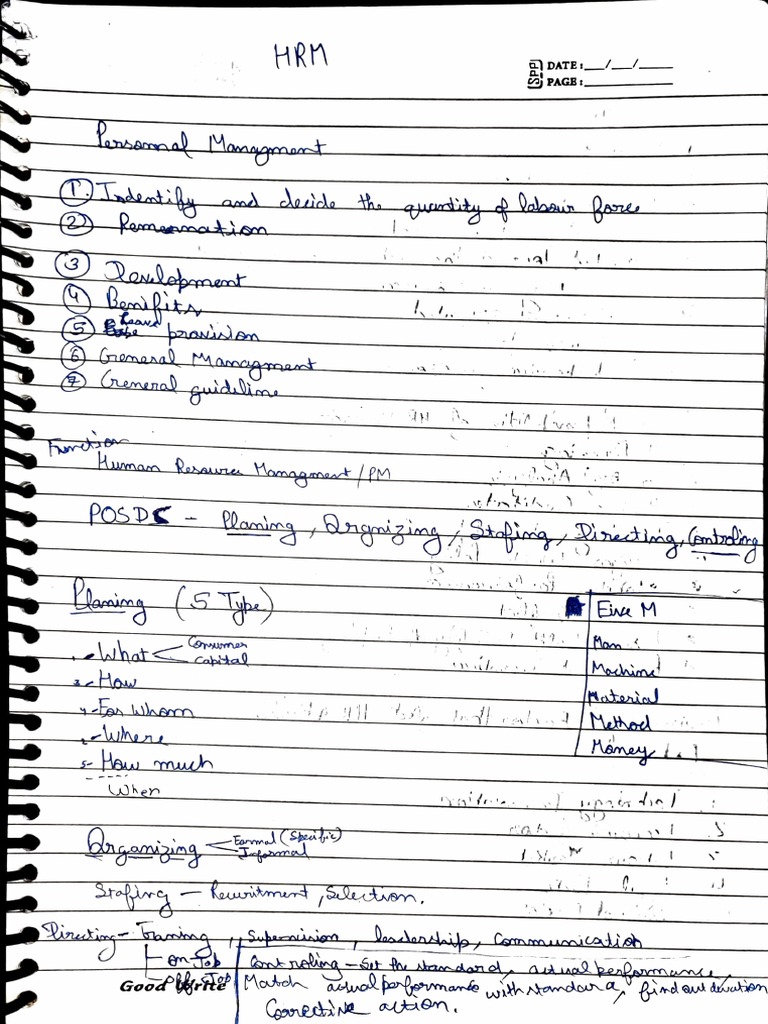 HRM
SPP DATE: __/__/__
PAGE: ______
Personnal Managment
1. Indentify and decide the quantity of labour force
2 Remernation
3 Development
4 Benifits
5 Leave provision
6 General Managment
7 General guideline
Function
Human Resource Managment/PM
POSDC - Planing, Orgnizing, Stafing, Directing, Controling
Planing (5 Type)
1. - What < Consumer
Capital
3 - How
4 - For Whom
2. - Where
5 - How much
When
Five M
Man
Machine
Material
Method
Money
Organizing < Formal (Specific)
Informal
Stafing - Recuritment, Selection.
Directing - Traning, Supervision, leadership, Communication
on Job
off Job
Controling - Set the standard, actual performance,
Match actual performance with standard, find out devation
Corrective action.
Good Write